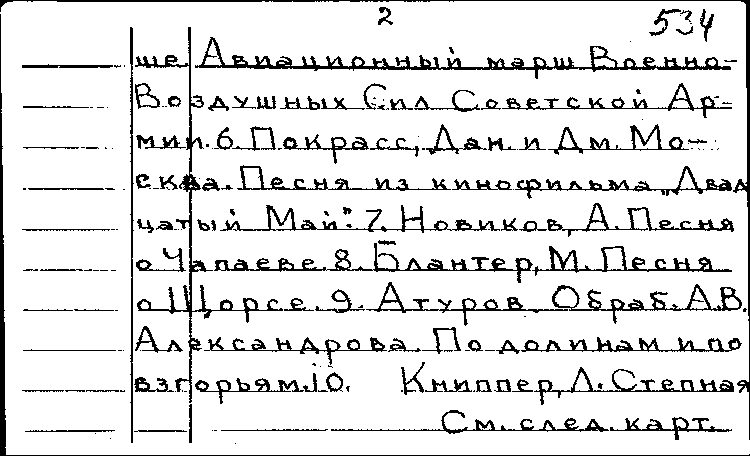 2 534
ше. Авиационный марш Военно-
Воздушных Сил Советской Ар-
мии. 6. Покрасс, Дан. и Дм. Мо-
сква. Песня из кинофильма „Двад
цатый Май". 7. Новиков, А. Песня
о Чапаеве. 8. Блантер, М. Песня
о Щорсе. 9. Атуров. Обраб. А.В.
Александрова. По долинам и по
взгорьям. 10. Книппер, Л. Степная
См. след. карт.